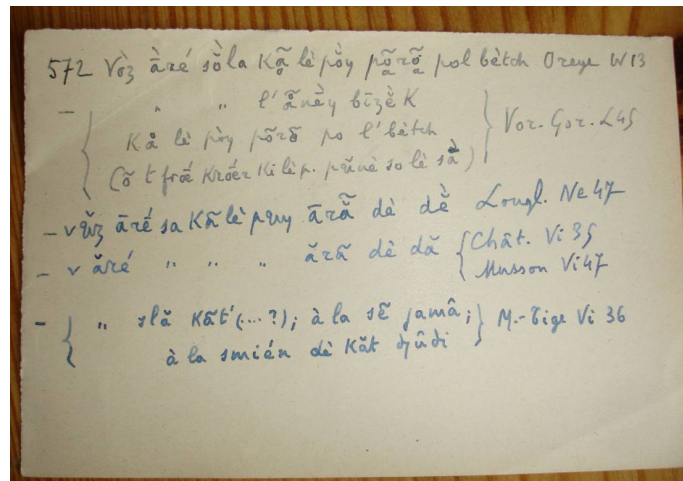 572 Vòz āré sò la Kā̃ lè pòy põrõ pol bètch Oreye W 13
- " " l'ãnèy bîzèK
Kå lè pòy põrõ po l'bètch
(õ t froé Kroér Ki lè p. pũnè so lè sã̀) Vor.-Gor. L45
- v ŭz āré sa Kã lè puy ārã dè dẽ Longl. Ne 47
- v ăré " " " ărã dè dã Chât. Vi 35
Musson Vi 47
- " slã Kãt' (...?); à la sẽ jamâ; M.-Tige Vi 36
à la smién dè Kăt djûdi